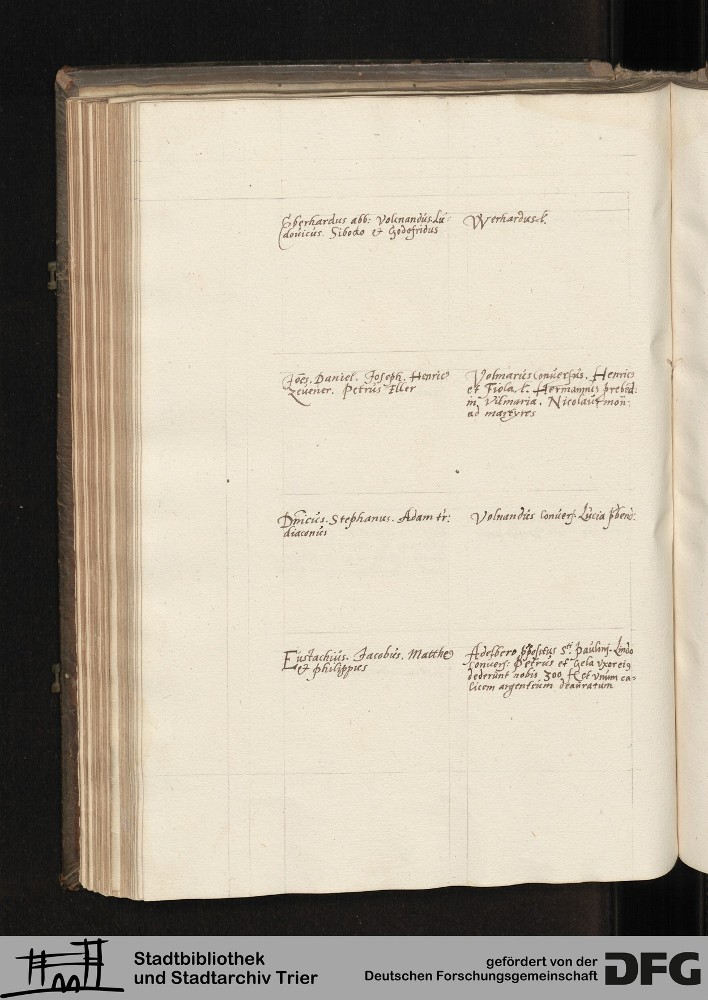 Eberhardus abb: Volcnandus Lu-
dovicus. Sibodo et Godefridus
Werhardus l.
Joes. Daniel. Joseph. Henric9
Zevener. Petrus Eller
Volmarus Conversus. Henric9
et Fiola l. Hermannus prebed:
in Vilmaria. Nicolaus mon:
ad martyres
Dnicus. Stephanus. Adam tr:
diaconus
Volnandus Convers. Lucia pbend:
Eustachius. Jacobus. Matthe9
et Philippus
Adelbero ppositus Sti Paulini. Lindo
Convers: Petrus et Gela uxor ei9
dederunt nobis 300 fl et unum ca-
licem argenteum deauratum
Stadtbibliothek
und Stadtarchiv Trier
gefördert von der
Deutschen Forschungsgemeinschaft
DFG